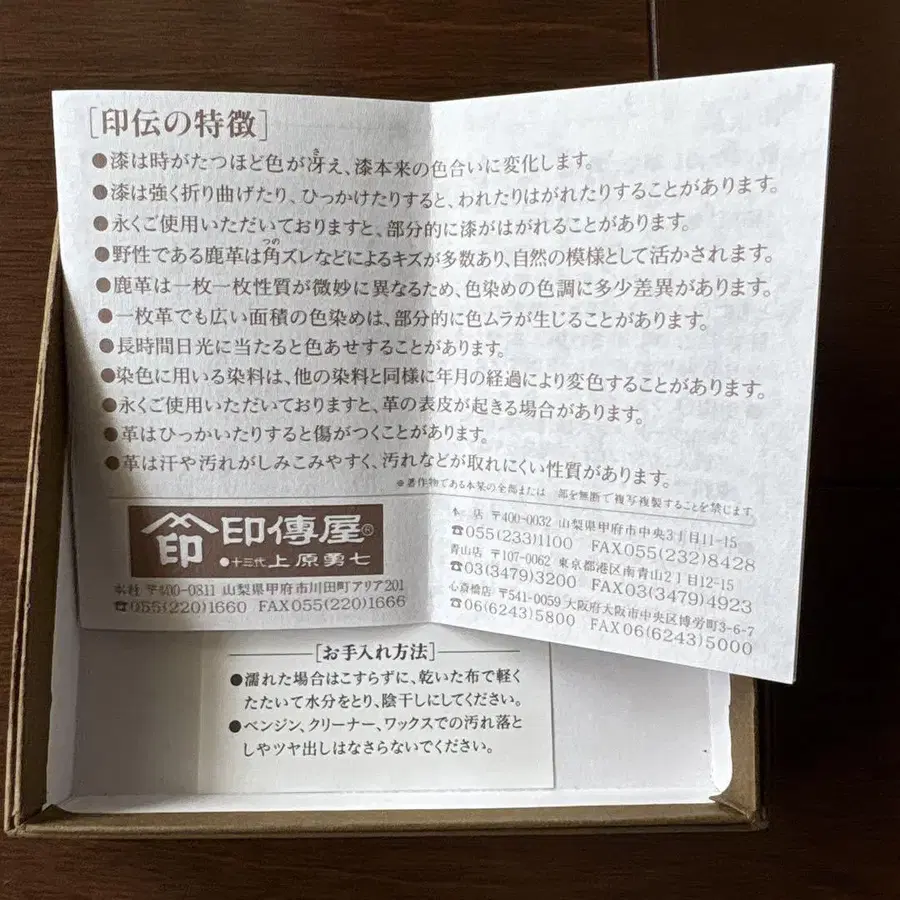 [印伝の特徴]
●漆は時がたつほど色が冴え、漆本来の色合いに変化します。
●漆は強く折り曲げたり、ひっかけたりすると、われたりはがれたりすることがあります。
●永くご使用いただいておりますと、部分的に漆がはがれることがあります。
●野性である鹿革は角ズレなどによるキズが多数あり、自然の模様として活かされます。
●鹿革は一枚一枚性質が微妙に異なるため、色染めの色調に多少差異があります。
●一枚革でも広い面積の色染めは、部分的に色ムラが生じることがあります。
●長時間日光に当たると色あせすることがあります。
●染色に用いる染料は、他の染料と同様に年月の経過により変色することがあります。
●永くご使用いただいておりますと、革の表皮が起きる場合があります。
●革はひっかいたりすると傷がつくことがあります。
●革は汗や汚れがしみこみやすく、汚れなどが取れにくい性質があります。
※著作物である本栞の全部または 部を無断で複写複製することを禁じます
印 印傳屋®
●十三代 上原勇七
本社 〒400-0811 山梨県甲府市川田町アリア201
☎055(220)1660 FAX055(220)1666
店 〒400-0032 山梨県甲府市中央3丁目11-15
☎055(233)1100 FAX055(232)8428
青山店 〒107-0062 東京都港区南青山2丁目12-15
☎03(3479)3200 FAX03(3479)4923
心斎橋店 〒541-0059 大阪府大阪市中央区博労町3-6-7
☎06(6243)5800 FAX06(6243)5000
[お手入れ方法]
●濡れた場合はこすらずに、乾いた布で軽く
たたいて水分をとり、陰干しにしてください。
●ベンジン、クリーナー、ワックスでの汚れ落と
しやツヤ出しはなさらないでください。